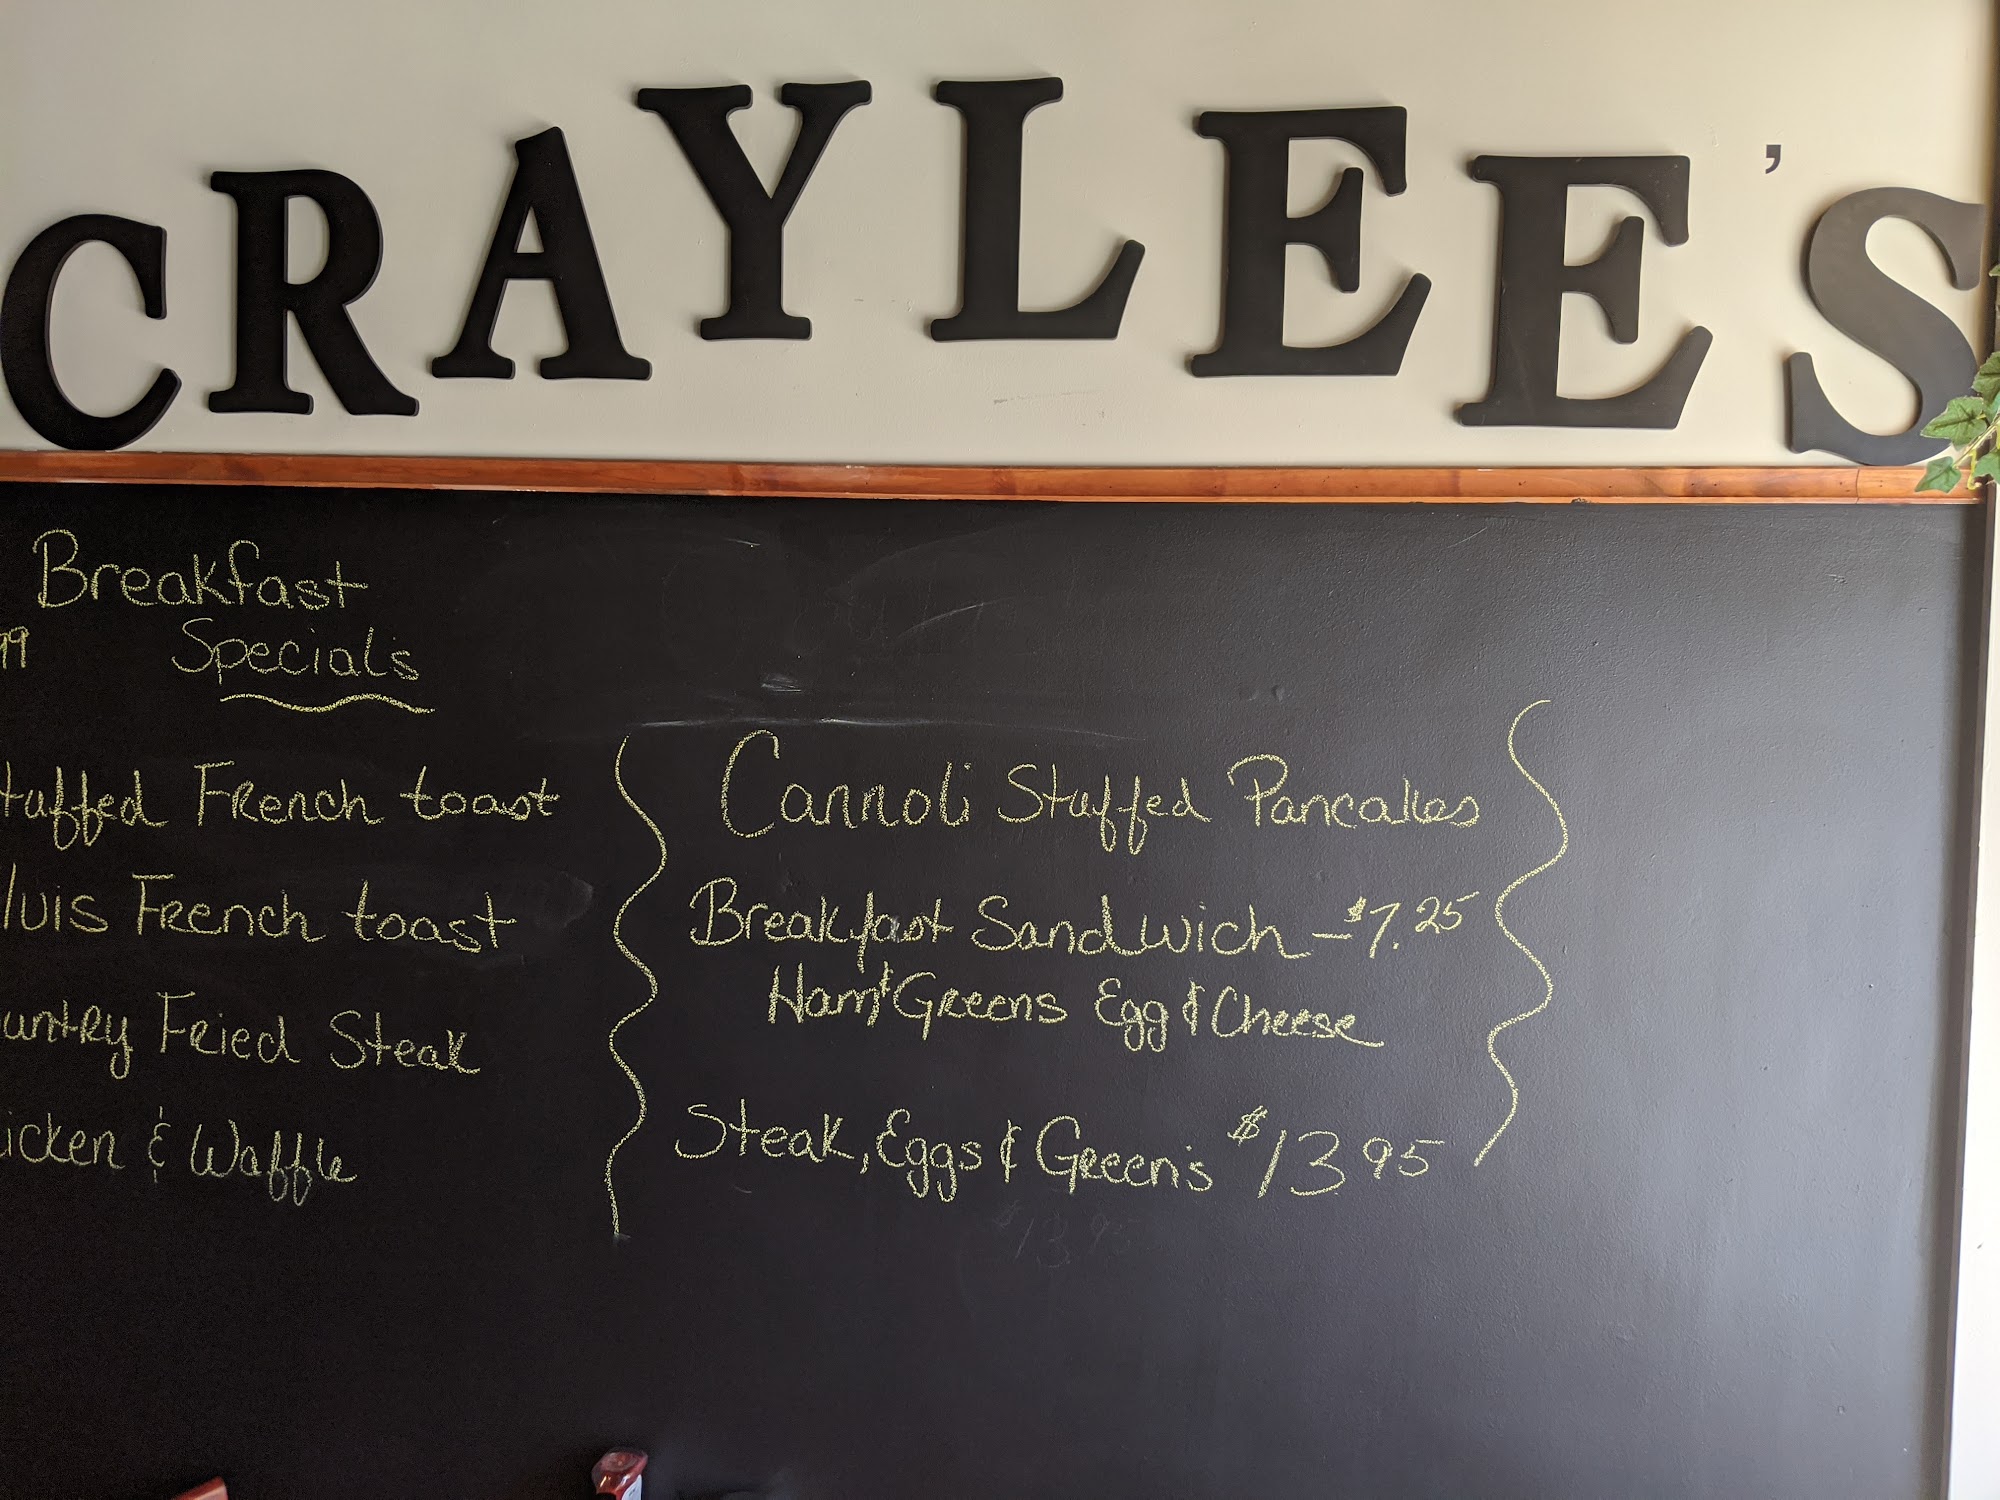 CRAYLEE'S
Breakfast
99 Specials
tuffed French toast
lvis French toast
untry Fried Steak
icken & Waffle
Cannoli Stuffed Pancakes
Breakfast Sandwich - $7.25
Ham & Greens Egg & Cheese
Steak, Eggs & Green's $13.95
$13.95